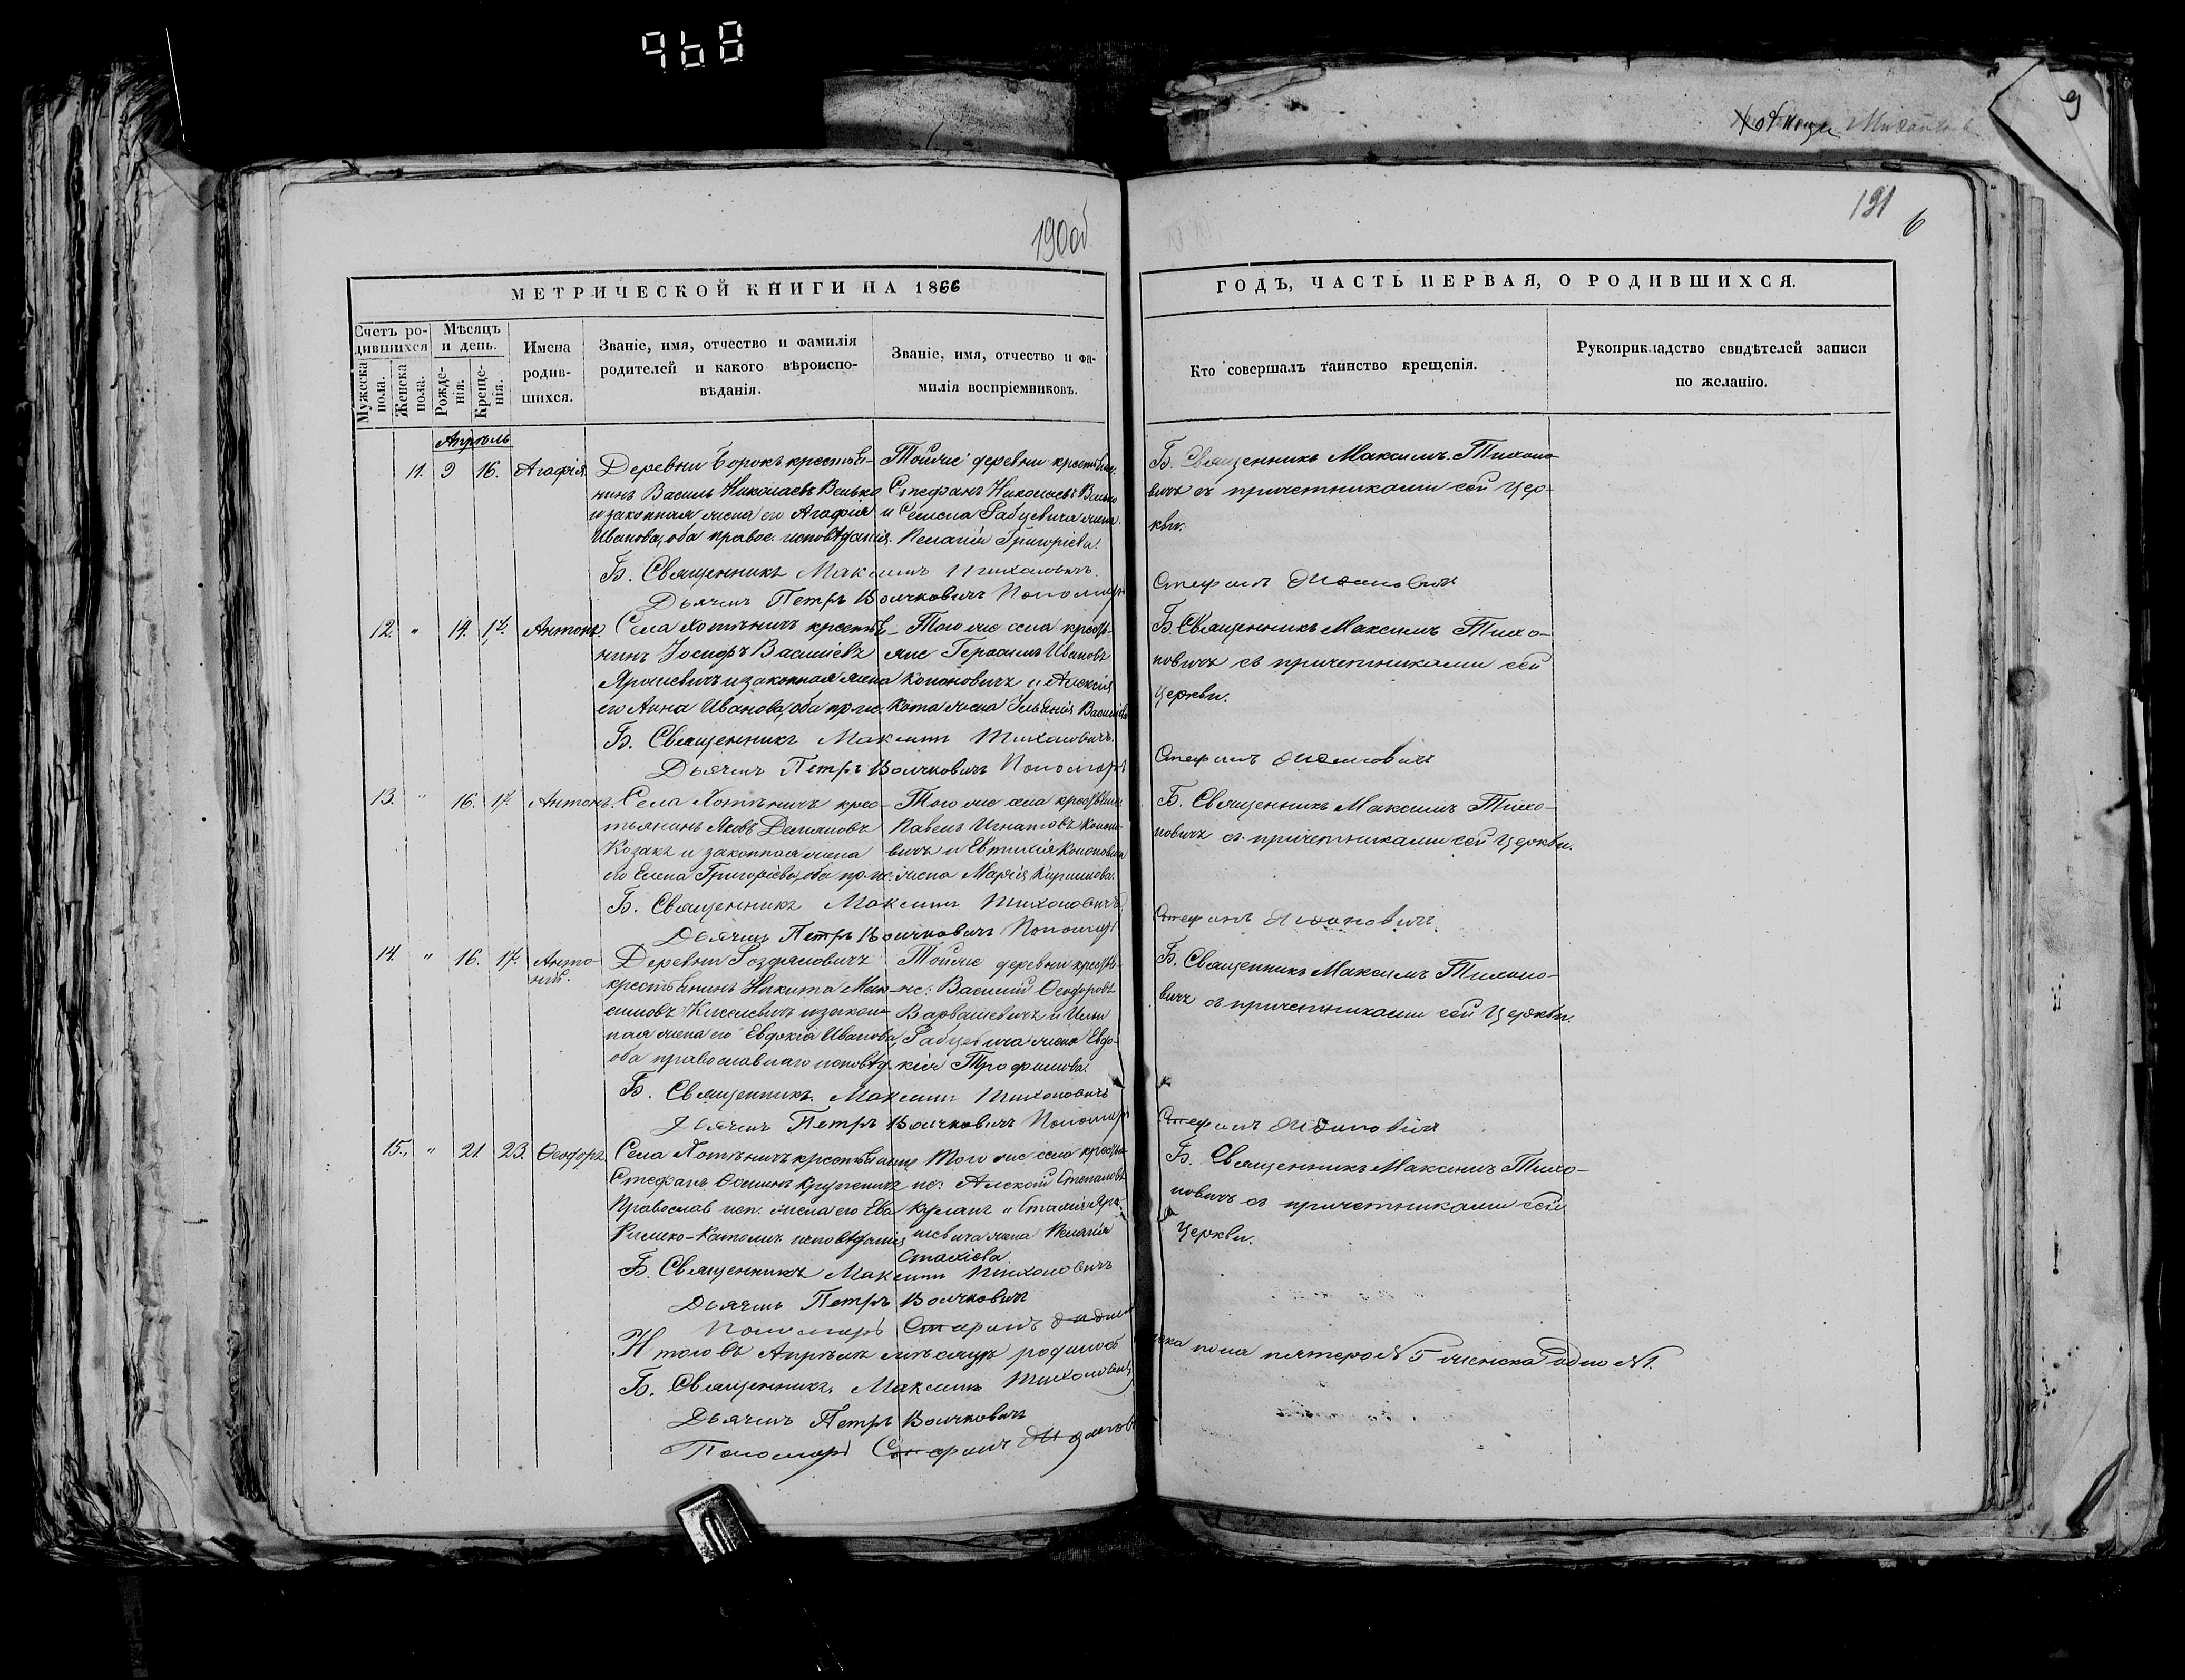 968
9
190 об
191
6
МЕТРИЧЕСКОЙ КНИГИ НА 1866
ГОДЪ, ЧАСТЬ ПЕРВАЯ, О РОДИВШИХСЯ.
Счетъ ро-
дившихся
Мужеска пола.
Женска пола.
Мѣсяцъ
и день.
Рожде-
нія.
Креще-
нія.
Имена
родив-
шихся.
Званіе, имя, отчество и фамилія
родителей и какого вѣроиспо-
вѣданія.
Званіе, имя, отчество и фа-
милія воспріемниковъ.
Кто совершалъ таинство крещенія.
Рукоприкладство свидѣтелей записи
по желанію.
Апрѣль
11. 9 16. Агафія
Деревни Борокъ крестья-
нинъ Василь Николаевъ Велько
и законная жена его Агафія
Иванова, оба правос. исповѣданія.
Тойже деревни крестьян.
Стефанъ Николаевъ Велько
и Семена Рабцевича жена
Пелагія Григоріева.
Б. Священникъ Максимъ Тихоно-
вичъ съ причетниками сей Цер-
кви.
Б. Священникъ Максимъ Тихоновичъ.
Дьячекъ Петръ Волчковичъ Пономарь
Стефанъ
12. " 14. 17. Антонъ.
Села Хотѣничъ крестья-
нинъ Іосифъ Василіевъ
Ярошевичъ и законная жена
его Анна Иванова, оба пр. ис.
Того же села крестья-
не Герасимъ Ивановъ
Кононовичъ и Алексія
Кота жена Ульянія Василіева
Б. Священникъ Максимъ Тихо-
новичъ съ причетниками сей
Церкви.
Б. Священникъ Максимъ Тихоновичъ.
Дьячекъ Петръ Волчковичъ Пономарь
Стефанъ
13. " 16. 17. Антонъ.
Села Хотѣничъ крес-
тьянинъ Яковъ Демяновъ
Козакъ и законная жена
его Елена Григоріева, оба пр. ис.
Того же села крестьяне
Павелъ Игнатовъ Конон-
овичъ и Евтихія Кононовича
жена Марія Кирилова.
Б. Священникъ Максимъ Тихо-
новичъ съ причетниками сей Церкви.
Б. Священникъ Максимъ Тихоновичъ
Дьячекъ Петръ Волчковичъ Пономарь
Стефанъ
14. " 16. 17. Анто-
ній.
Деревни
крестьянинъ Никита Мак-
симовъ Киселевичъ и закон-
ная жена его Евдокія Иванова,
оба православнаго исповѣд.
Тойже деревни крестья-
не: Василій Ѳеодоровъ
Варвашевичъ и Ильи
Рабцевича жена Евдо-
кія Трофимова.
Б. Священникъ Максимъ Тихоно-
вичъ съ причетниками сей Церкви.
Б. Священникъ Максимъ Тихоновичъ
Дьячекъ Петръ Волчковичъ Пономарь
Стефанъ
15. " 21. 23. Ѳеодоръ
Села Хотѣничъ крестьянинъ
Стефанъ Крупеничъ
Православ. исп. жена его Ева
Римско-Католич. исповѣданія
Того же села крестья-
не: Алексѣй Степановъ
и
жена Пелагія
Стахіева.
Б. Священникъ Максимъ Тихо-
новичъ съ причетниками сей
Церкви.
Б. Священникъ Максимъ Тихоновичъ
Дьячекъ Петръ Волчковичъ
Пономарь Стефанъ
Итого въ Апрѣлѣ мѣсяцѣ родилось
пола пятеро № 5 женска одно № 1.
Б. Священникъ Максимъ Тихоновичъ
Дьячекъ Петръ Волчковичъ
Пономарь Стефанъ